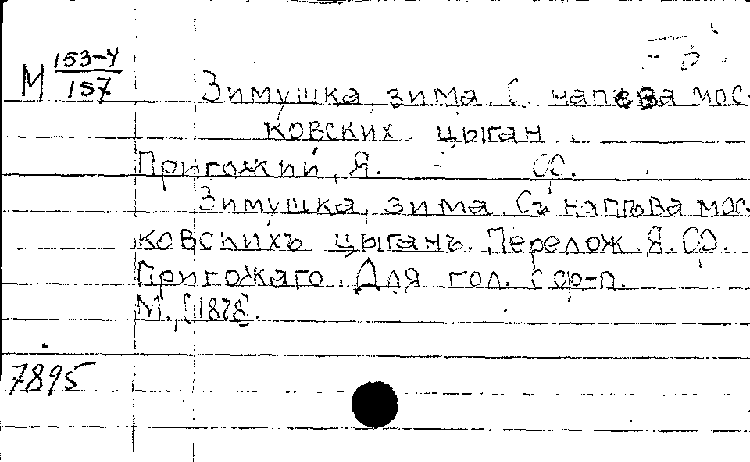 М 153-4/157
Зимушка, зима. С напева мос-
ковских цыган.
Пригожий, Я. Ф.
Зимушка, зима. Съ напѣва мос-
ковскихъ цыганъ. Перелож. Я. Ф.
Пригожаго. Для гол. с ф-п.
М., [1878].
7895